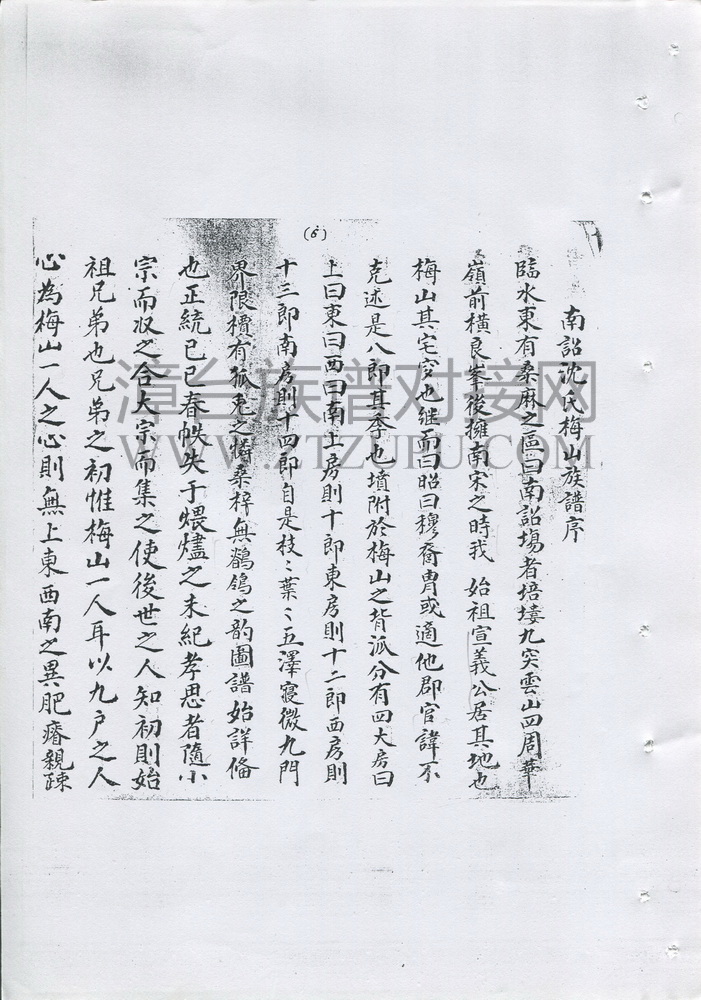 (6)
南詔沈氏梅山族譜序
臨水東有桑麻之區曰南詔塲者培塿九突雲山四周華
嶺前橫良峯後擁南宋之時我 始祖宣義公居其地也
梅山其宅穸也继而曰昭曰穆裔胄或適他郡官諱不
克述是八郎其季也墳附於梅山之背派分有四大房曰
上曰東曰西曰南上房則十郎東房則十二郎西房則
十三郎南房則十四郎自是枝〻葉〻五澤寖微九門
界限檟有狐兎之憐桑梓無鶺鴒之韵圖譜始詳俻
也正統己巳春帙失于煨燼之末紀孝思者隨小
宗而收之合大宗而集之使後世之人知初則始
祖兄弟也兄弟之初惟梅山一人耳以九户之人
心為梅山一人之心則無上東西南之異肥瘠親疎
漳台族普对接网
WWW.ZTZUPU.COM